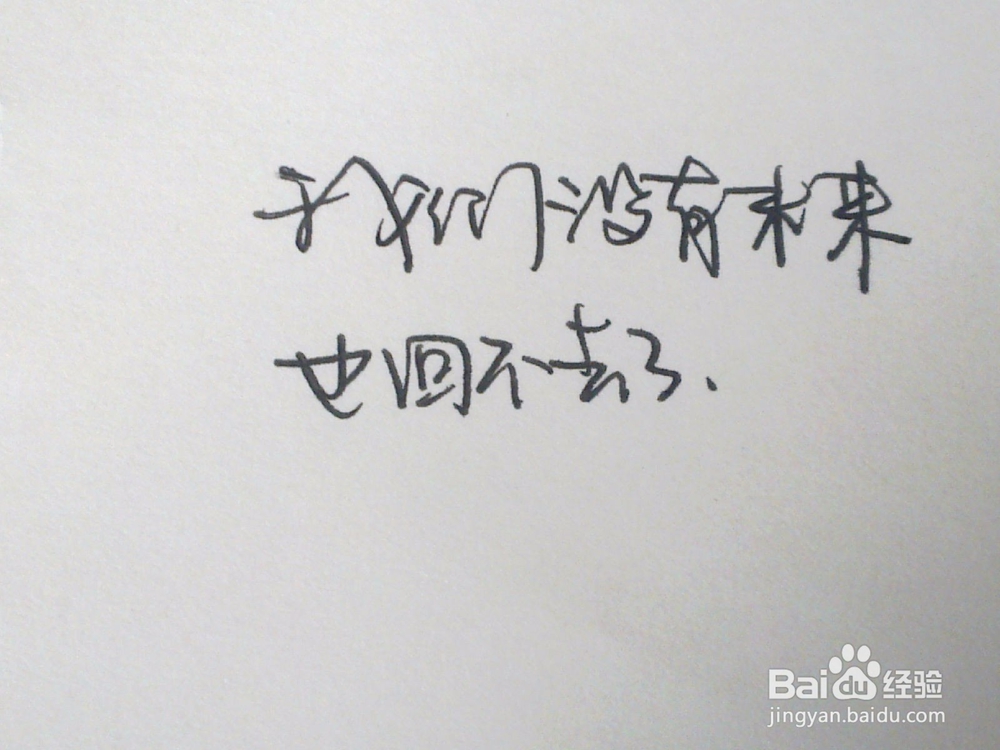 我们没有未来
也回不去了.
Baidu经验
jingyan.baidu.com